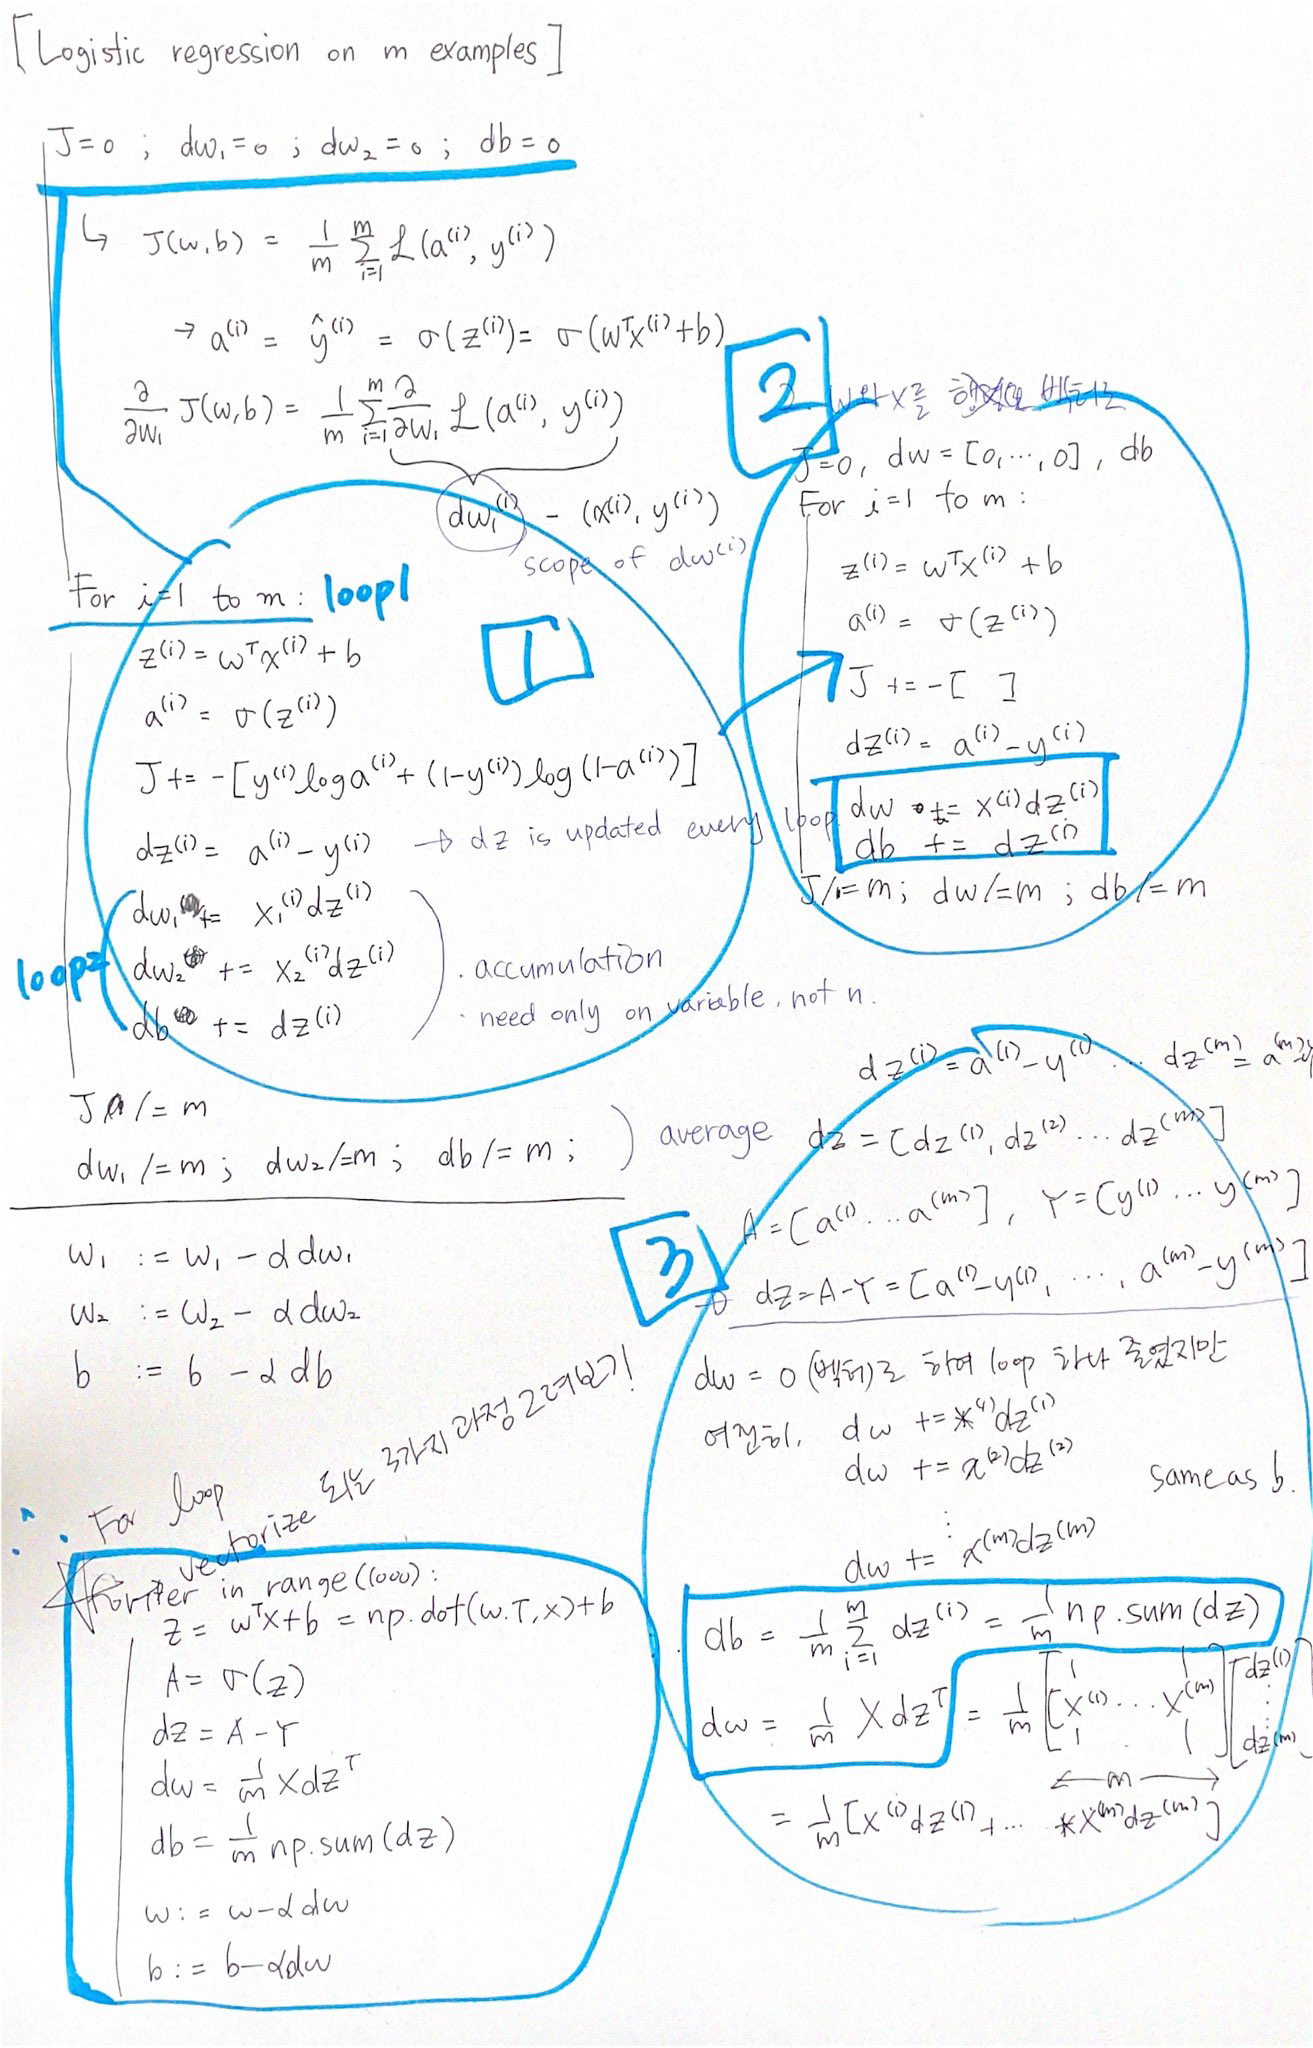 [Logistic regression on m examples]
J=0 ; dw₁=0 ; dw₂=0 ; db=0
↳ J(w,b) = 1/m Σᵢ₌₁ᵐ ℒ(a⁽ⁱ⁾, y⁽ⁱ⁾)
→ a⁽ⁱ⁾ = ŷ⁽ⁱ⁾ = σ(z⁽ⁱ⁾) = σ(wᵀx⁽ⁱ⁾+b)
∂/∂w₁ J(w,b) = 1/m Σᵢ₌₁ᵐ ∂/∂w₁ ℒ(a⁽ⁱ⁾, y⁽ⁱ⁾)
dw₁⁽ⁱ⁾ - (x⁽ⁱ⁾, y⁽ⁱ⁾)
scope of dw⁽ⁱ⁾
For i=1 to m : loop1
1
z⁽ⁱ⁾ = wᵀx⁽ⁱ⁾ + b
a⁽ⁱ⁾ = σ(z⁽ⁱ⁾)
J += -[y⁽ⁱ⁾ log a⁽ⁱ⁾ + (1-y⁽ⁱ⁾) log (1-a⁽ⁱ⁾)]
dz⁽ⁱ⁾ = a⁽ⁱ⁾ - y⁽ⁱ⁾ → dz is updated every loop
loop2
dw₁ += x₁⁽ⁱ⁾dz⁽ⁱ⁾
dw₂ += x₂⁽ⁱ⁾dz⁽ⁱ⁾
db += dz⁽ⁱ⁾
· accumulation
· need only on variable, not n.
J /= m
dw₁ /= m ; dw₂ /= m ; db /= m ;
average
w₁ := w₁ - αdw₁
w₂ := w₂ - αdw₂
b := b - αdb
2
w와 x를 벡터로
J=0, dw = [0,⋯,0] , db
For i=1 to m :
z⁽ⁱ⁾ = wᵀx⁽ⁱ⁾ + b
a⁽ⁱ⁾ = σ(z⁽ⁱ⁾)
J += -[ ]
dz⁽ⁱ⁾ = a⁽ⁱ⁾ - y⁽ⁱ⁾
dw += x⁽ⁱ⁾dz⁽ⁱ⁾
db += dz⁽ⁱ⁾
J /= m ; dw /= m ; db /= m
3
dz⁽ⁱ⁾ = a⁽¹⁾ - y⁽¹⁾ ⋯ dz⁽ᵐ⁾ = a⁽ᵐ⁾-y
dz = [dz⁽¹⁾, dz⁽²⁾ ⋯ dz⁽ᵐ⁾]
A = [a⁽¹⁾ ⋯ a⁽ᵐ⁾] , Y = [y⁽¹⁾ ⋯ y⁽ᵐ⁾]
→ dz = A-Y = [a⁽¹⁾-y⁽¹⁾, ⋯, a⁽ᵐ⁾-y⁽ᵐ⁾]
dw = 0 (벡터)로 하여 loop 하나 줄였지만
여전히, dw += x⁽¹⁾dz⁽¹⁾
dw += x⁽²⁾dz⁽²⁾
same as b.
⋮
dw += x⁽ᵐ⁾dz⁽ᵐ⁾
db = 1/m Σᵢ₌₁ᵐ dz⁽ⁱ⁾ = 1/m np.sum(dz)
dw = 1/m X dzᵀ = 1/m [x⁽¹⁾ ⋯ x⁽ᵐ⁾] [dz⁽¹⁾ ⋮ dz⁽ᵐ⁾]
← m →
= 1/m [x⁽ⁱ⁾dz⁽¹⁾ + ⋯ x⁽ᵐ⁾dz⁽ᵐ⁾]
∴ For loop
vectorize 되는 3가지 과정 그려보기!
for iter in range(1000) :
z = wᵀx+b = np.dot(w.T, x)+b
A = σ(z)
dz = A - Y
dw = 1/m X dzᵀ
db = 1/m np.sum(dz)
w := w-αdw
b := b-αdw